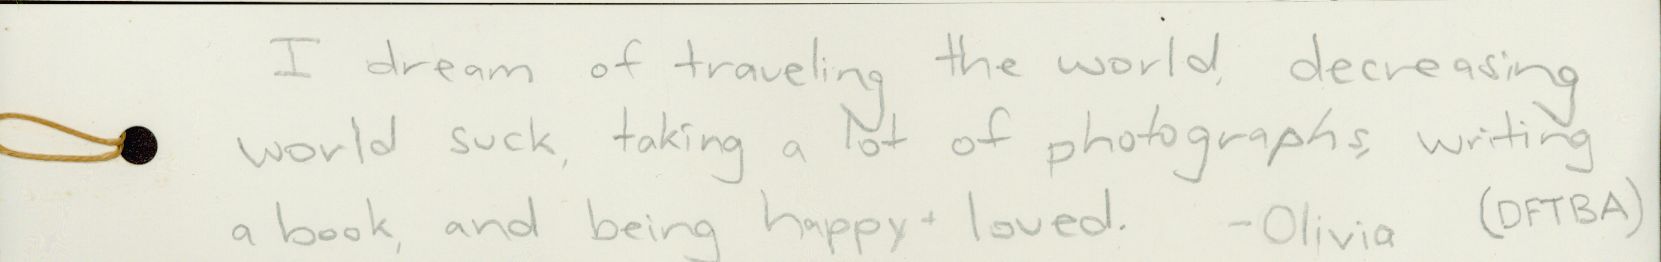 I dream of traveling the world, decreasing
world suck, taking a lot of photographs, writing
a book, and being happy + loved. -Olivia (DFTBA)